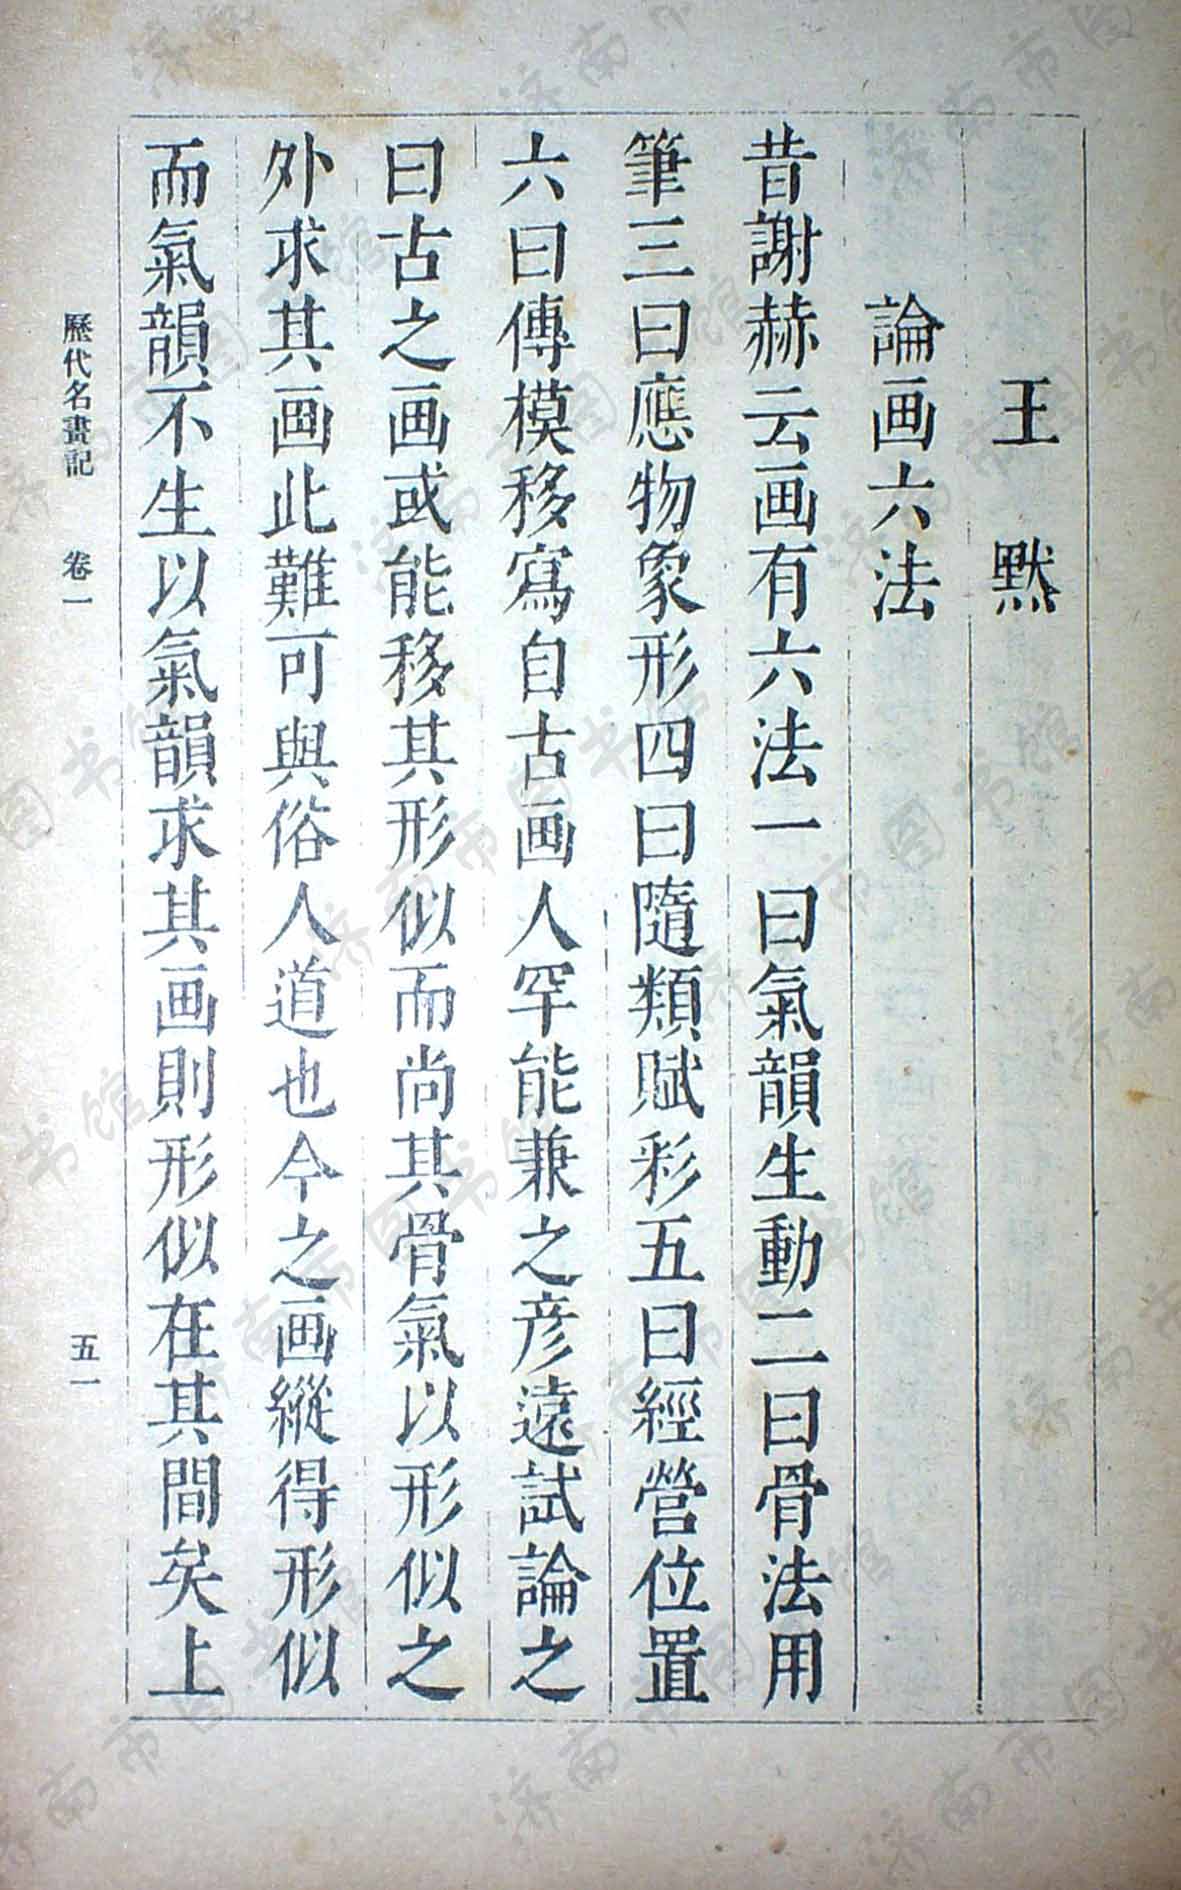 王默
論画六法
昔謝赫云画有六法一曰氣韻生動二曰骨法用
筆三曰應物象形四曰隨類賦彩五曰經營位置
六曰傳模移寫自古画人罕能兼之彦遠試論之
曰古之画或能移其形似而尚其骨氣以形似之
外求其画此難可與俗人道也今之画縱得形似
而氣韻不生以氣韻求其画則形似在其間矣上
歷代名畫記 卷一 五一
济南市图书馆